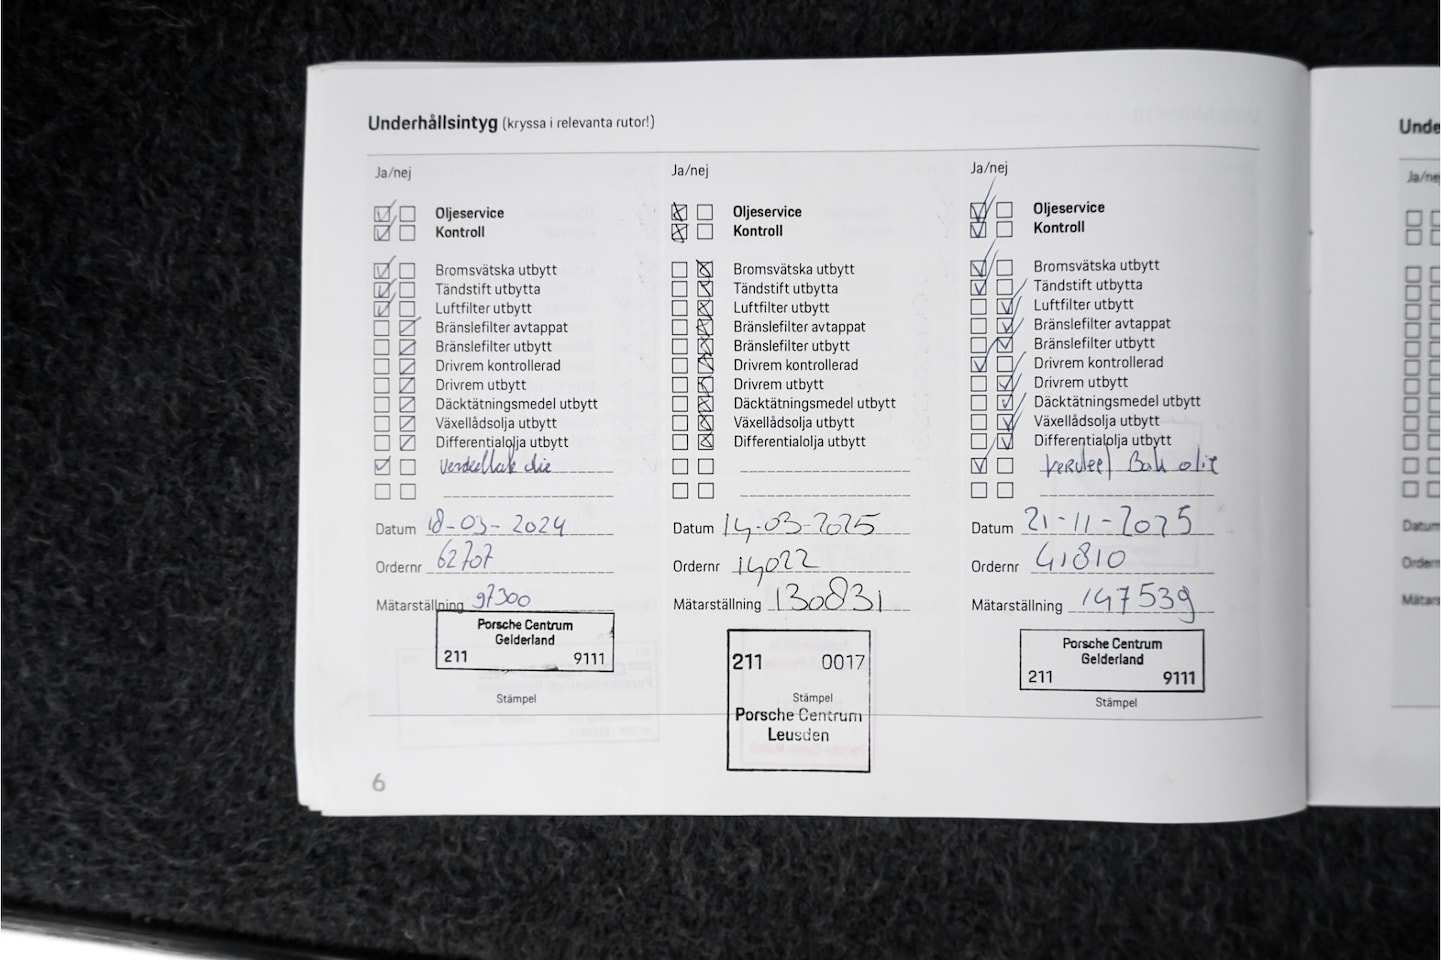 Underhållsintyg (kryssa i relevanta rutor!)
Ja/nej
Oljeservice
Kontroll
Bromsvätska utbytt
Tändstift utbytta
Luftfilter utbytt
Bränslefilter avtappat
Bränslefilter utbytt
Drivrem kontrollerad
Drivrem utbytt
Däcktätningsmedel utbytt
Växellådsolja utbytt
Differentialolja utbytt
Datum 18-03-2024
Ordernr 62707
Mätarställning 97300
Porsche Centrum
Gelderland
211 9111
Stämpel
Ja/nej
Oljeservice
Kontroll
Bromsvätska utbytt
Tändstift utbytta
Luftfilter utbytt
Bränslefilter avtappat
Bränslefilter utbytt
Drivrem kontrollerad
Drivrem utbytt
Däcktätningsmedel utbytt
Växellådsolja utbytt
Differentialolja utbytt
Datum 14-03-2025
Ordernr 14022
Mätarställning 130831
211 0017
Stämpel
Porsche Centrum
Leusden
Ja/nej
Oljeservice
Kontroll
Bromsvätska utbytt
Tändstift utbytta
Luftfilter utbytt
Bränslefilter avtappat
Bränslefilter utbytt
Drivrem kontrollerad
Drivrem utbytt
Däcktätningsmedel utbytt
Växellådsolja utbytt
Differentialolja utbytt
Bak olie
Datum 21-11-2025
Ordernr 41810
Mätarställning 147539
Porsche Centrum
Gelderland
211 9111
Stämpel
6